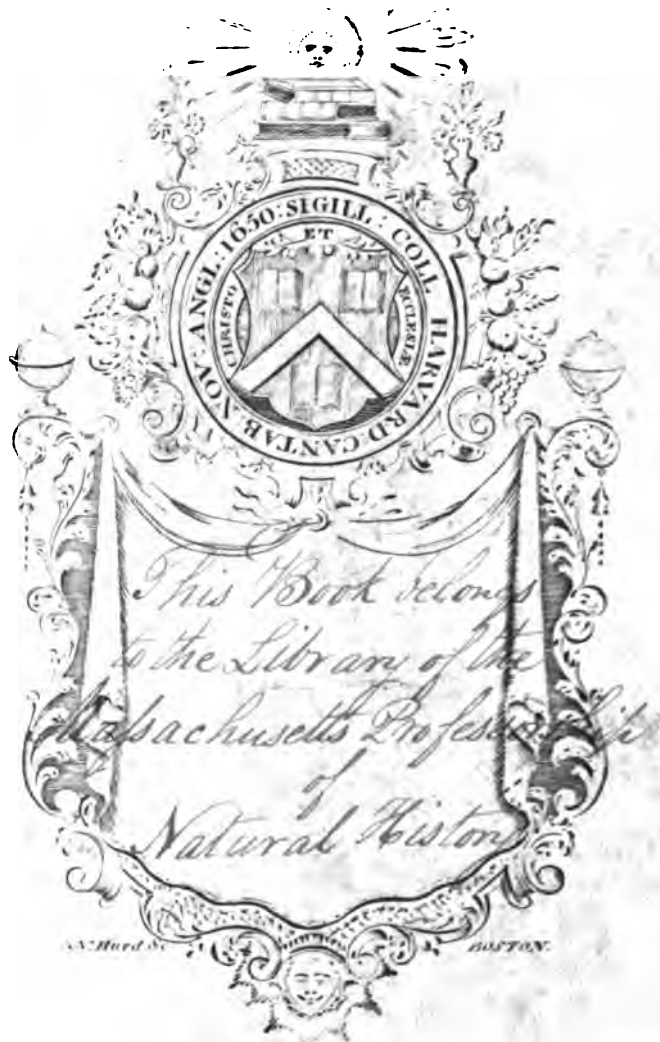 SIGILL: COLL HARVARD CANTAB. NOV: ANGL: 1650:
ET
CHRISTO
ECCLESIÆ
This Book belongs
to the Library of the
Massachusetts Professorship
of
Natural History
N. Hurd Sc
BOSTON.